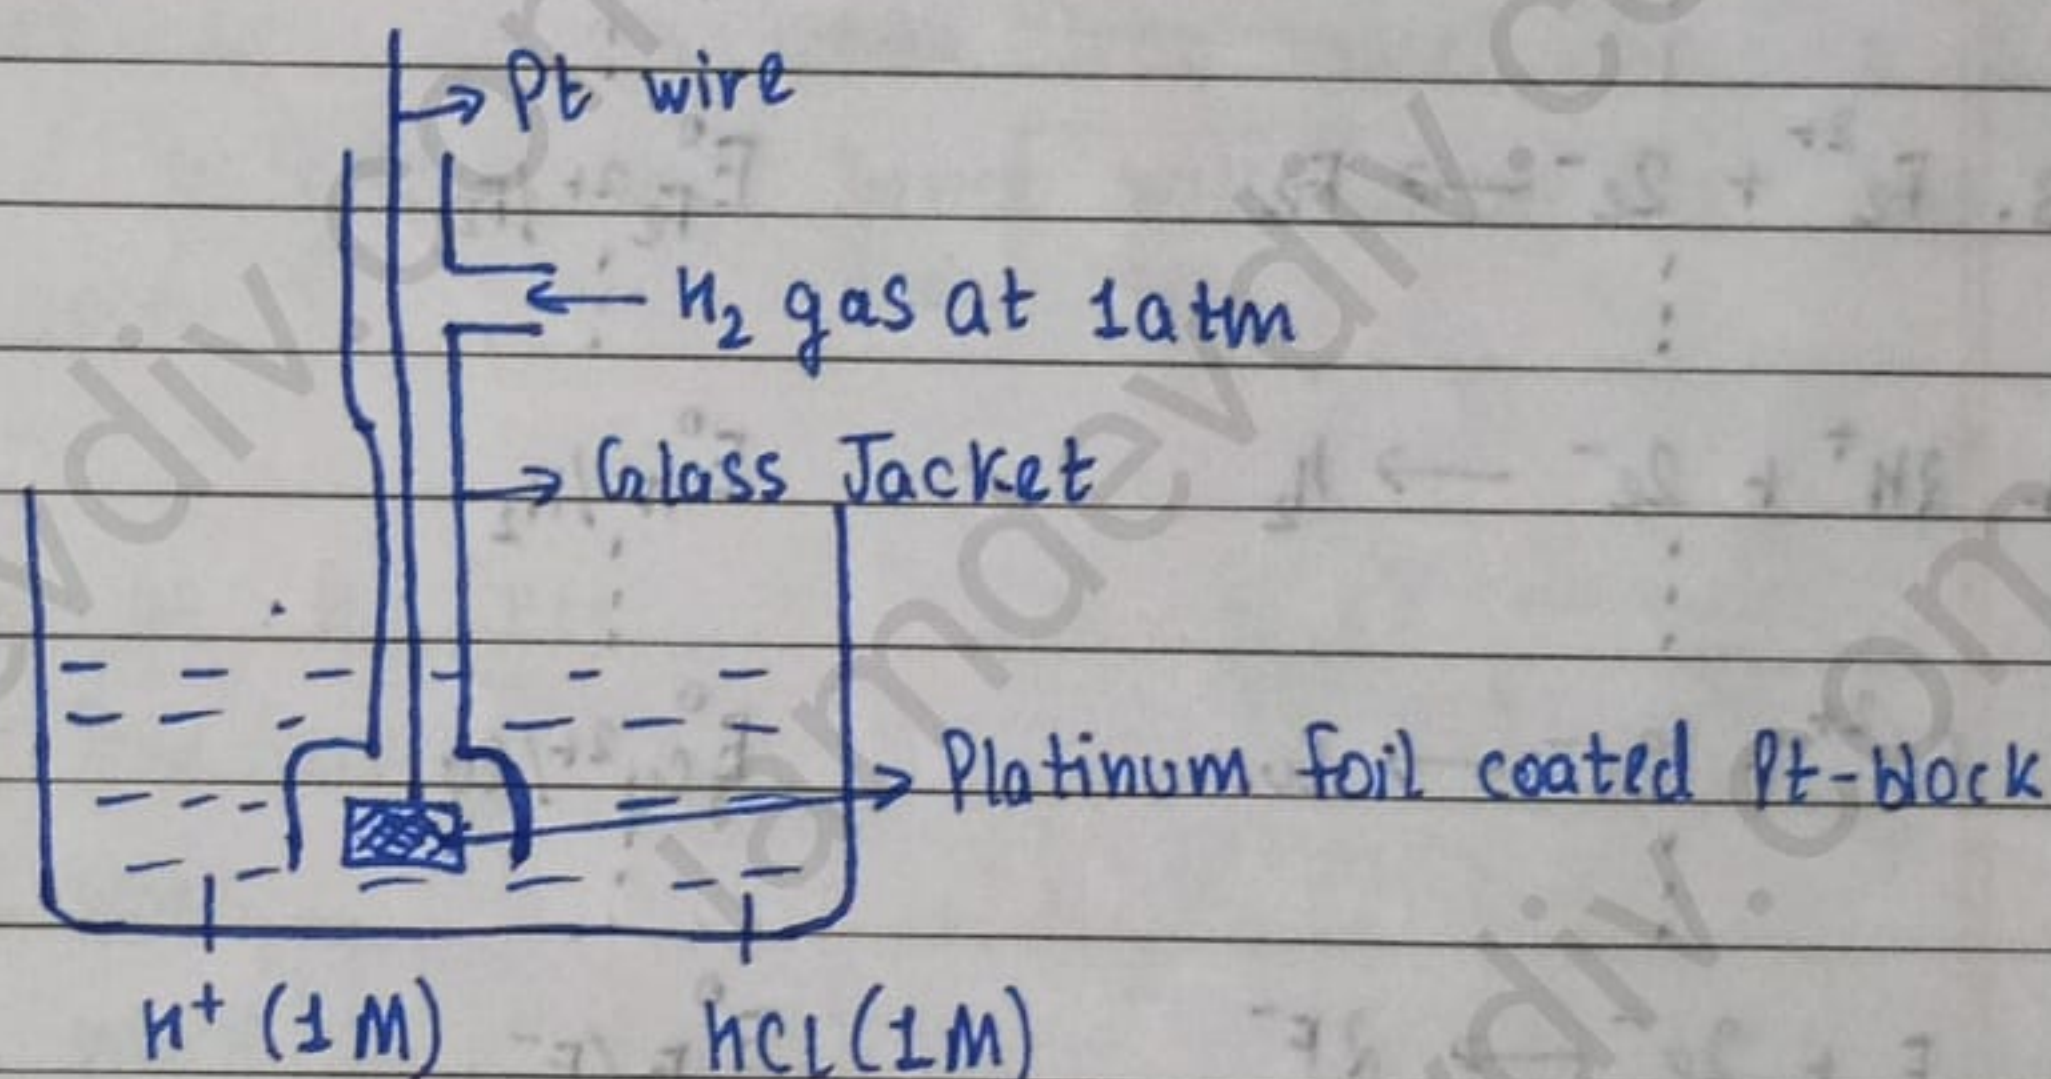 Pt wire
H₂ gas at 1atm
Glass Jacket
Platinum foil coated Pt-block
H⁺ (1M)
hCl (1M)
iamdevdiv.com